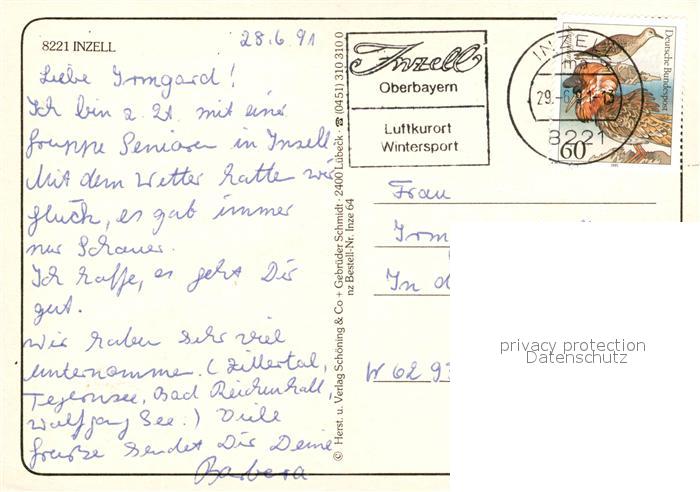 8221 INZELL
28.6.91
Liebe Irmgard!
Ich bin z. Zt. mit einer
Gruppe Senioren in Inzell
Mit dem Wetter hatte wir
Glück, es gab immer
nur Schauer.
Ich hoffe, es geht Dir
gut.
Wir haben sehr viel
unternommen. (Zillertal,
Tegernsee, Bad Reichenhall,
Wolfgang See.) Viele
Grüße sendet Dir Deine
Barbera
© Herst. u. Verlag Schöning & Co + Gebrüder Schmidt · 2400 Lübeck · ☎ (0451) 310 310 0
nz Bestell-Nr. Inze 64
Inzell
Oberbayern
Luftkurort
Wintersport
INZELL
29.-6
8221
Deutsche Bundespost
60
Frau
Irm
In d
W 62 9
privacy protection
Datenschutz